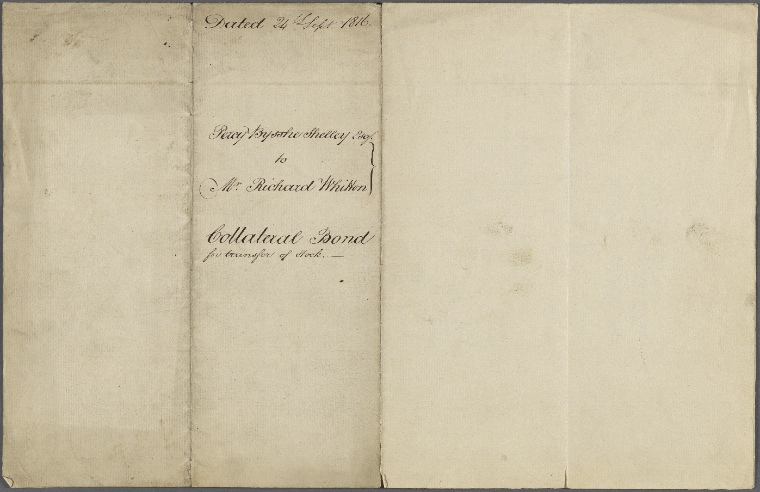 Dated 24th Sept 1816.
Percy Bysshe Shelley Esqr.
to
Mr. Richard Whitton
Collateral Bond
for transfer of stock. —